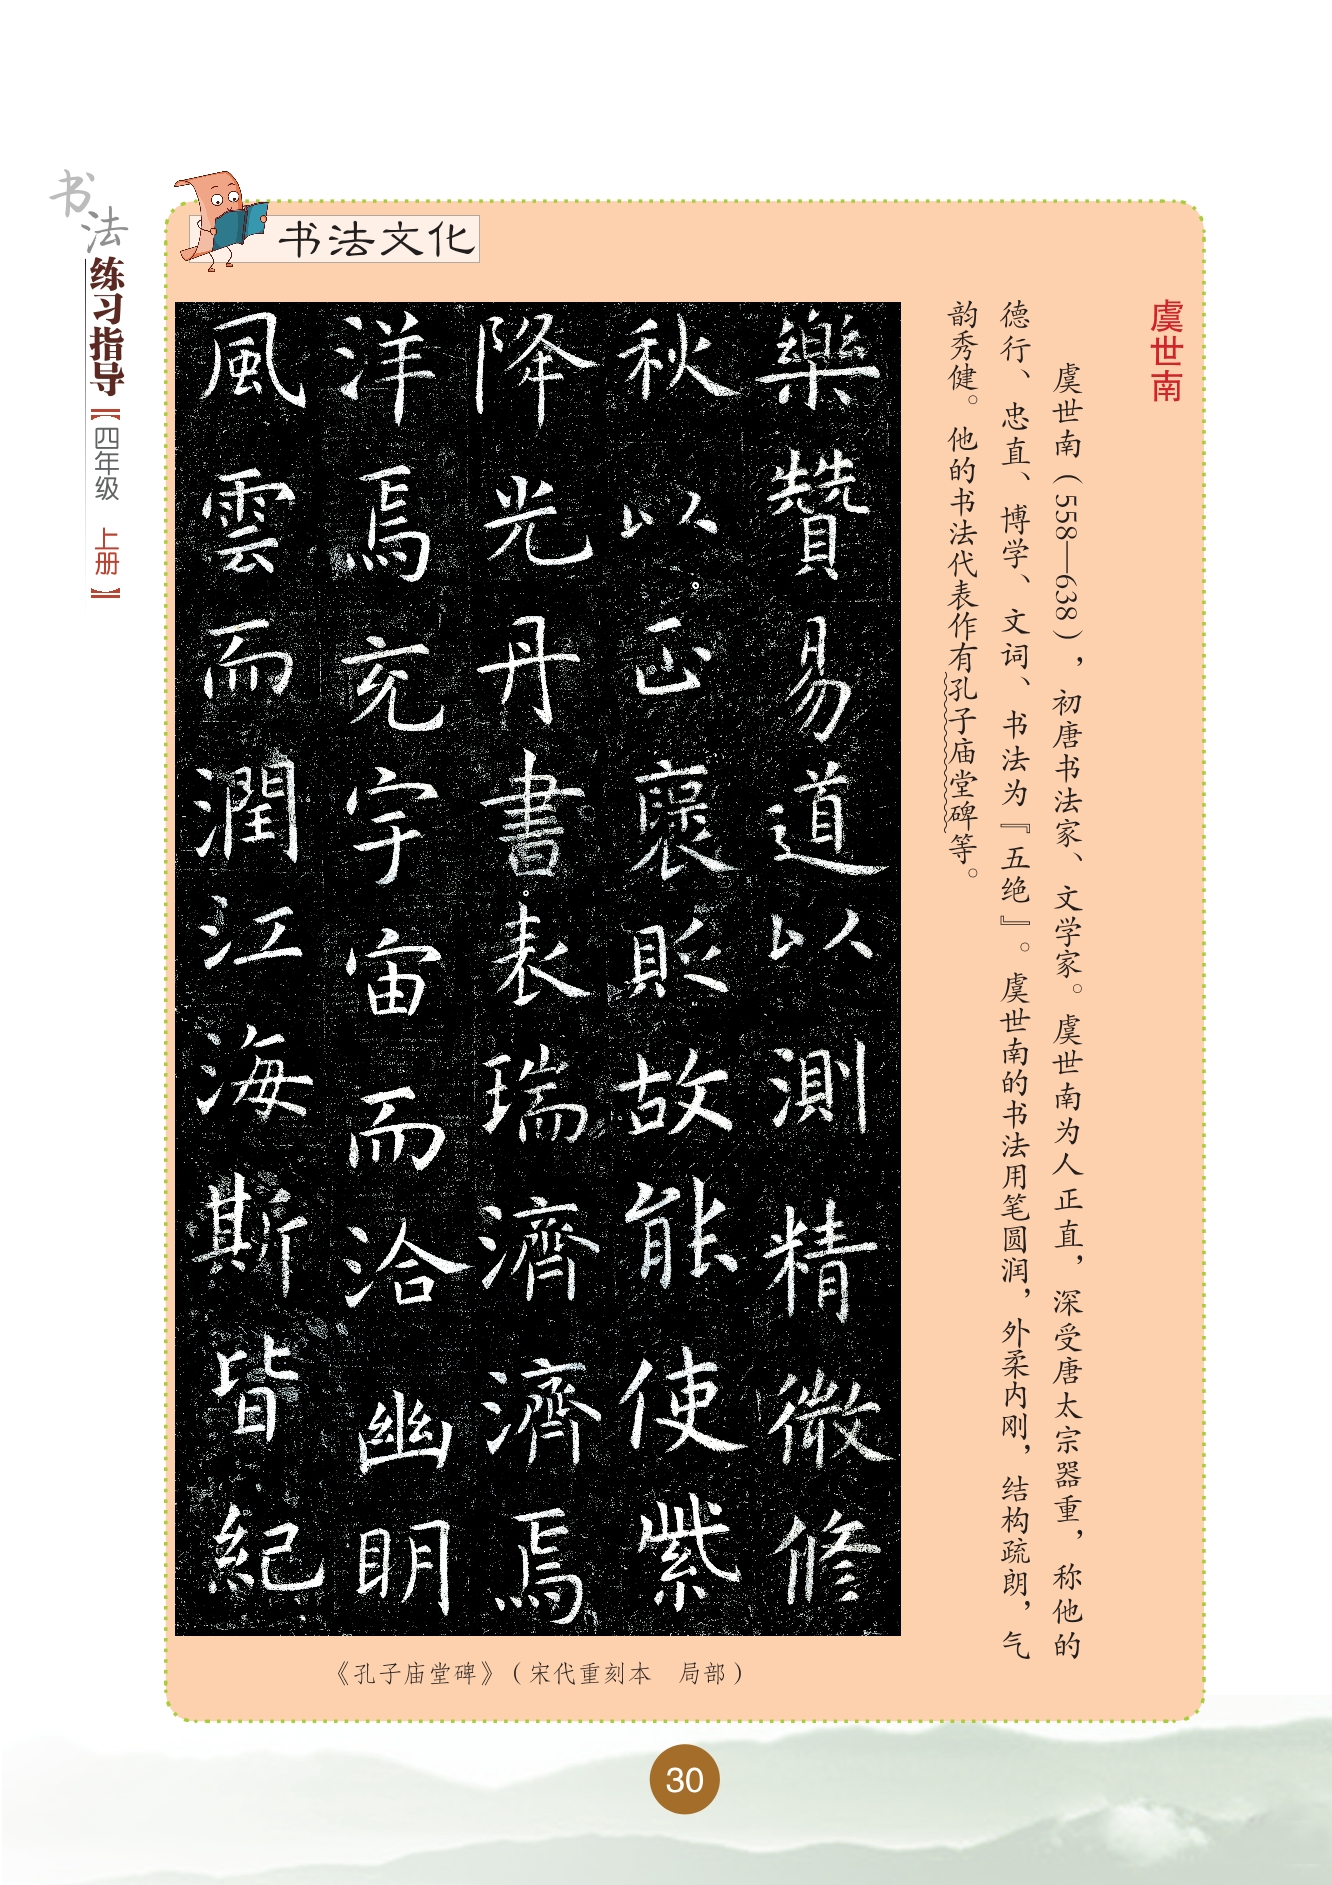 书法练习指导【四年级 上册】
书法文化
虞世南
虞世南（558—638），初唐书法家、文学家。虞世南为人正直，深受唐太宗器重，称他的
德行、忠直、博学、文词、书法为『五绝』。虞世南的书法用笔圆润，外柔内刚，结构疏朗，气
韵秀健。他的书法代表作有孔子庙堂碑等。
樂贊易道以測精微修
秋以正褒貶故能使紫
降光丹書表瑞濟濟焉
洋焉充宇宙而洽幽明
風雲而潤江海斯皆紀
《孔子庙堂碑》（宋代重刻本 局部）
30